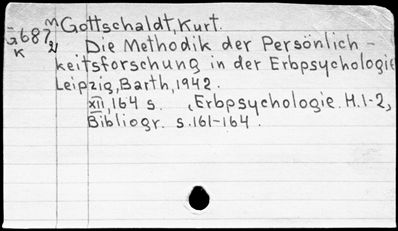 M Gottschaldt, Kurt.
G687 Die Methodik der Persönlich-
K keitsforschung in der Erbpsychologie
Leipzig, Barth, 1942.
XII, 164 s. (Erbpsychologie. H.1-2,
Bibliogr. s.161-164.